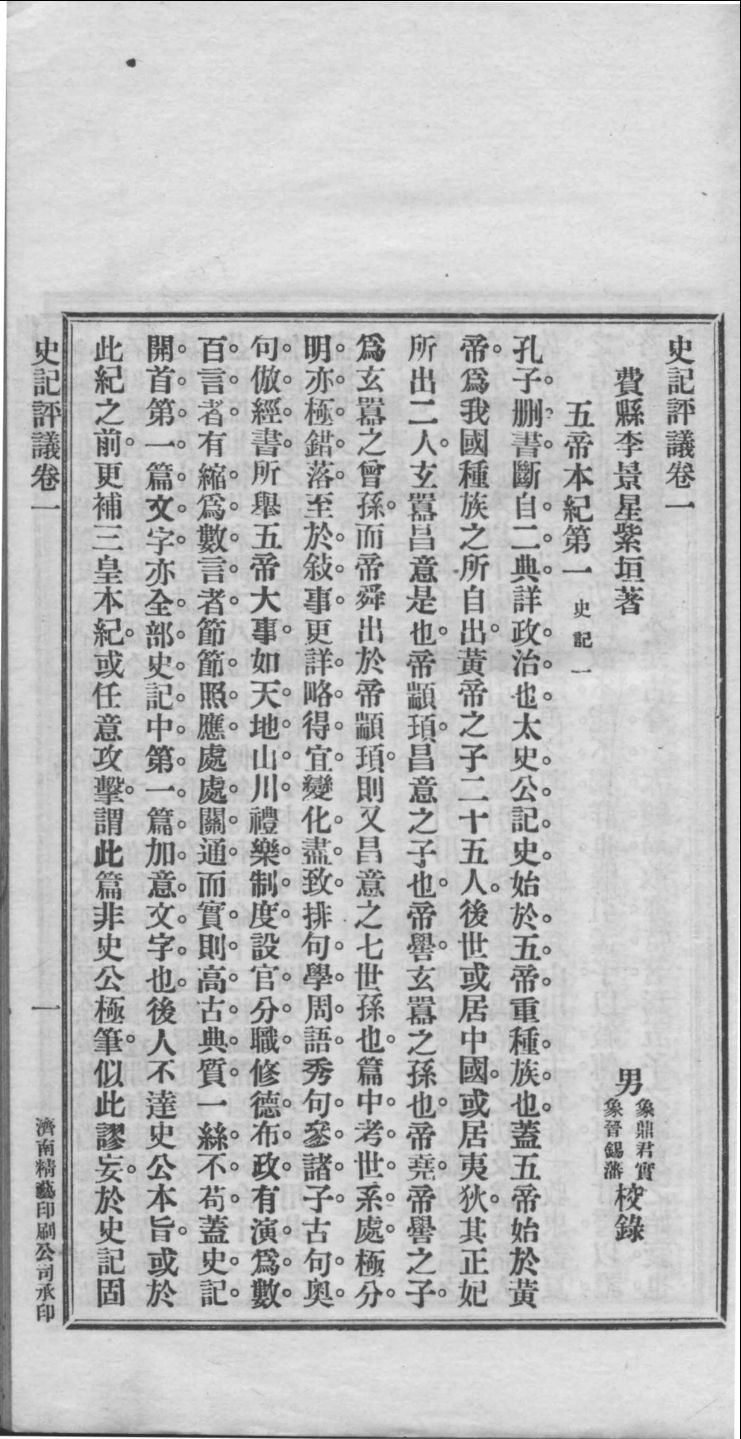 史記評議卷一
費縣李景星紫垣著 男象鼎君實象晉錫藩校錄
五帝本紀第一 史記一
孔子删書斷自二典詳政治也太史公記史始於五帝重種族也蓋五帝始於黃
帝爲我國種族之所自出黃帝之子二十五人後世或居中國或居夷狄其正妃
所出二人玄囂昌意是也帝顓頊昌意之子也帝嚳玄囂之孫也帝堯帝嚳之子
爲玄囂之曾孫而帝舜出於帝顓頊則又昌意之七世孫也篇中考世系處極分
明亦極錯落至於敍事更詳略得宜變化盡致排句學周語秀句參諸子古句奧
句倣經書所舉五帝大事如天地山川禮樂制度設官分職修德布政有演爲數
百言者有縮爲數言者節節照應處處關通而實則高古典質一絲不苟蓋史記
開首第一篇文字亦全部史記中第一篇加意文字也後人不達史公本旨或於
此紀之前更補三皇本紀或任意攻擊謂此篇非史公極筆似此謬妄於史記固
史記評議卷一 一 濟南精藝印刷公司承印